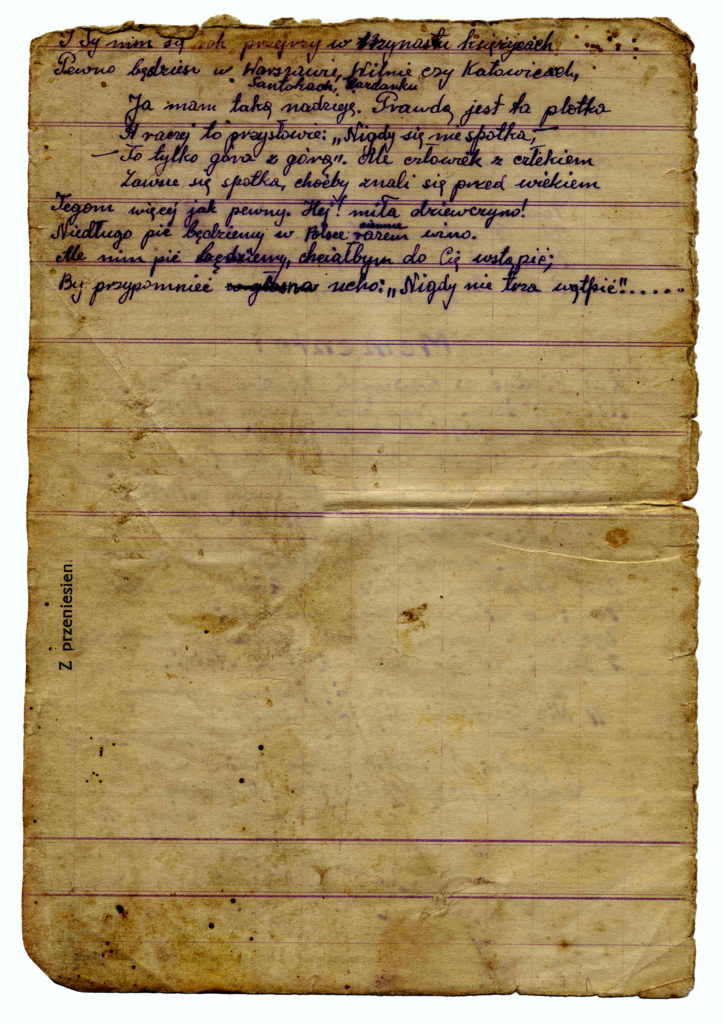 I Ty nim się rok przejrzy w trzynastu księżycach
Pewno będziesz w Warszawie, Wilnie czy Katowicach,
Santokach,
Ja mam taką nadzieję. Prawdą jest ta plotka
A raczej to przysłowie: „Nigdy się nie spotka,
— To tylko góra z górą". Ale człowiek z człekiem
Zawsze się spotka, choćby znali się przed wiekiem
Tegom więcej jak pewny. Hej! miła dziewczyno!
ciemne
Niedługo pić będziemy w Polsce razem wino.
Ale nim pić będziemy, chciałbym do Cię wstąpić;
By przypomnieć ucho: „Nigdy nie trza wątpić"......
Z przeniesien.